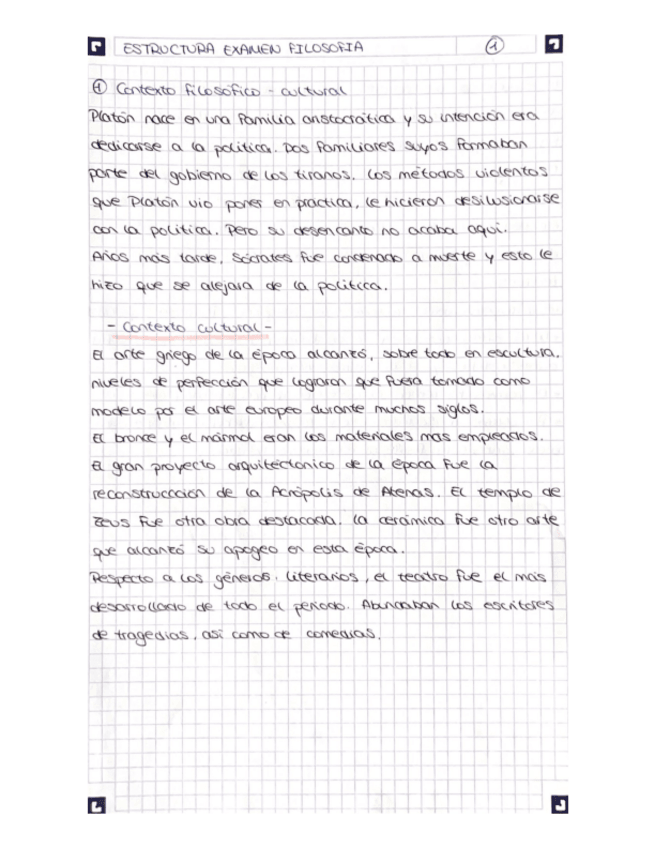 ESTRUCTURA EXAMEN FILOSOFIA
1
1 Contexto filosófico - cultural
Platón nace en una familia aristocrática y su intención era
dedicarse a la política. Dos familiares suyos formaban
parte del gobierno de los tiranos. Los métodos violentos
que Platón vio poner en practica, le hicieron desilusionarse
con la política. Pero su desencanto no acaba aquí.
Años más tarde, Sócrates fue condenado a muerte y esto le
hizo que se alejara de la política.
- Contexto cultural -
El arte griego de la época alcanzó, sobre todo en escultura,
niveles de perfección que lograron que fuera tomado como
modelo por el arte europeo durante muchos siglos.
El bronce y el mármol eran los materiales mas empleados.
El gran proyecto arquitectonico de la época fue la
reconstruccción de la Acrópolis de Atenas. El templo de
Zeus fue otra obra destacada. La cerámica fue otro arte
que alcanzó su apogeo en esta época.
Respecto a los géneros literarios, el teatro fue el más
desarrollado de todo el periodo. Abundaban los escritores
de tragedias, así como de comedias.